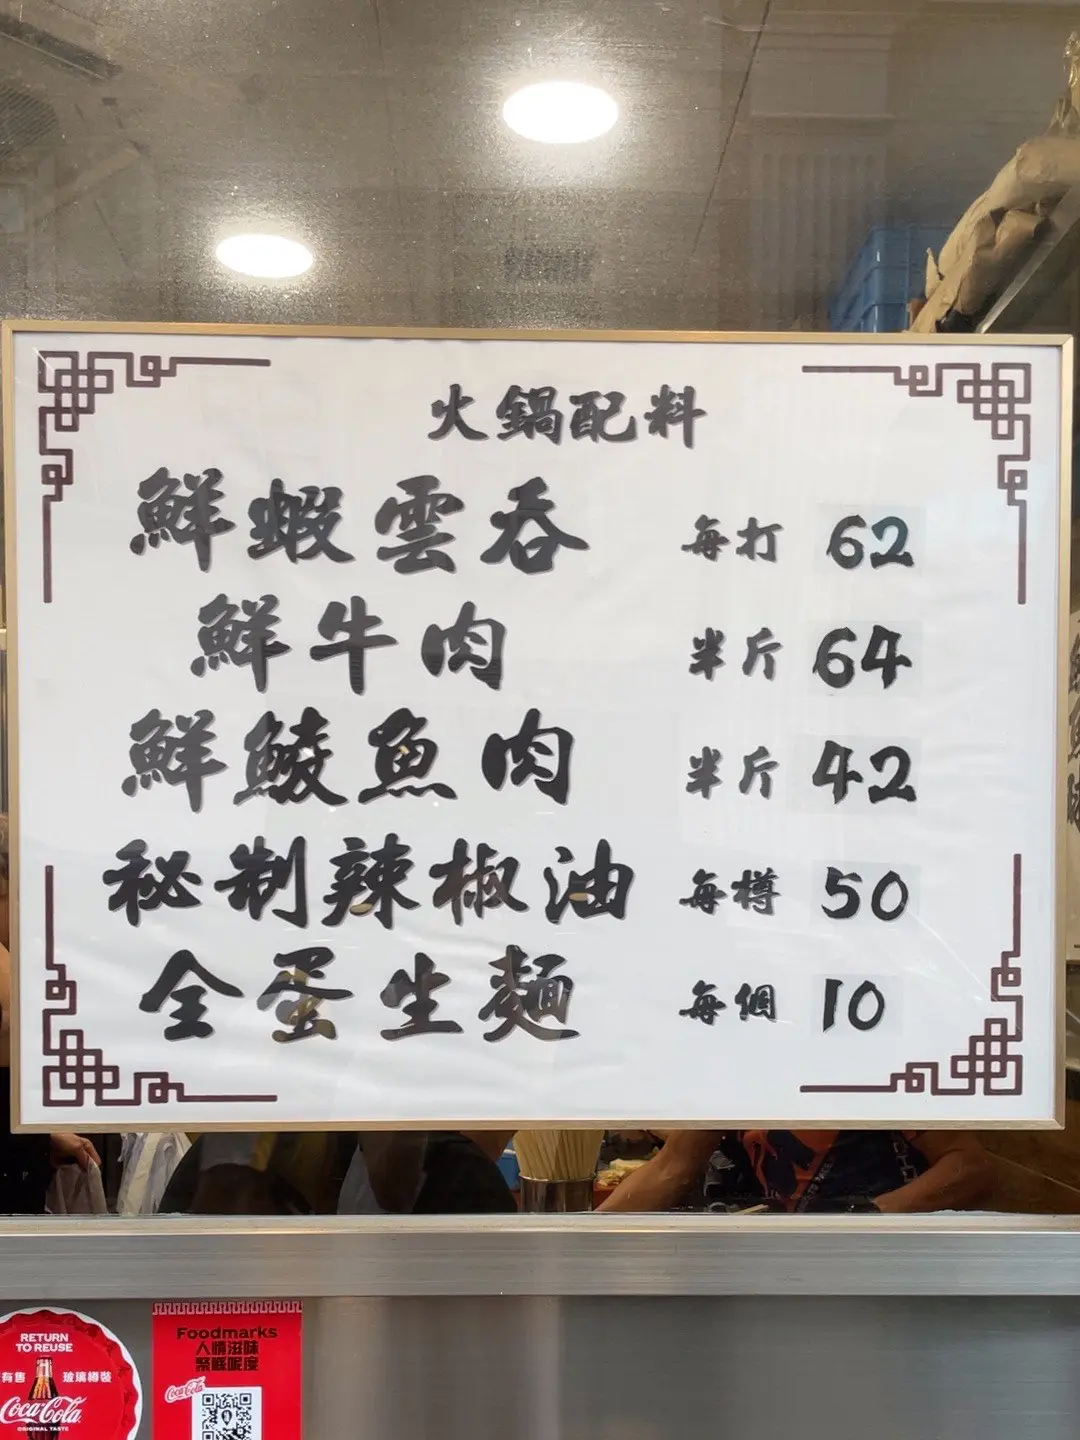 火鍋配料
鮮蝦雲吞 每打 62
鮮牛肉 半斤 64
鮮鯪魚肉 半斤 42
秘制辣椒油 每樽 50
全蛋生麵 每個 10
RETURN
TO REUSE
有售 玻璃樽裝
Coca-Cola
ORIGINAL TASTE
Foodmarks
人情滋味
聚喺呢度
Coca-Cola